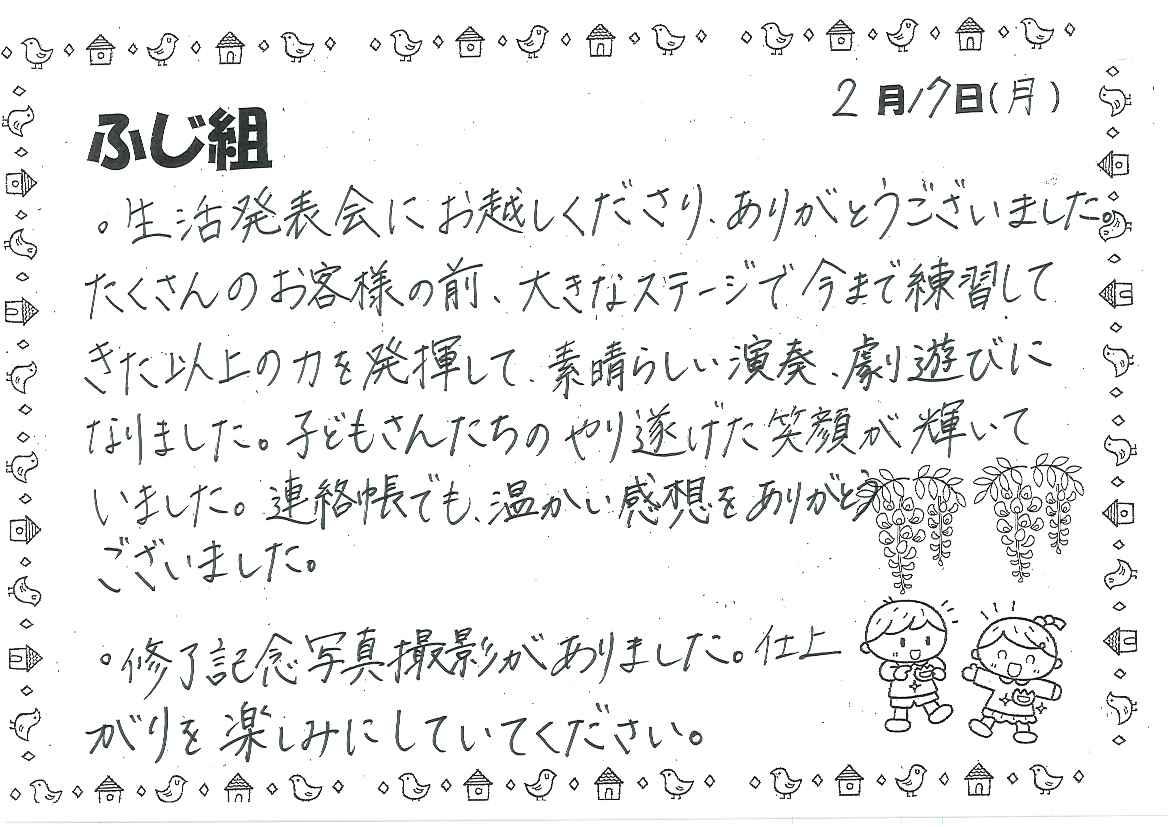 2月17日(月)
ふじ組
。生活発表会にお越しくださり、ありがとうございました。
たくさんのお客様の前、大きなステージで今まで練習して
きた以上の力を発揮して、素晴らしい演奏、劇遊びに
なりました。子どもさんたちのやり遂げた笑顔が輝いて
いました。連絡帳でも、温かい感想をありがとう
ございました。
。修了記念写真撮影がありました。仕上
がりを楽しみにしていてください。